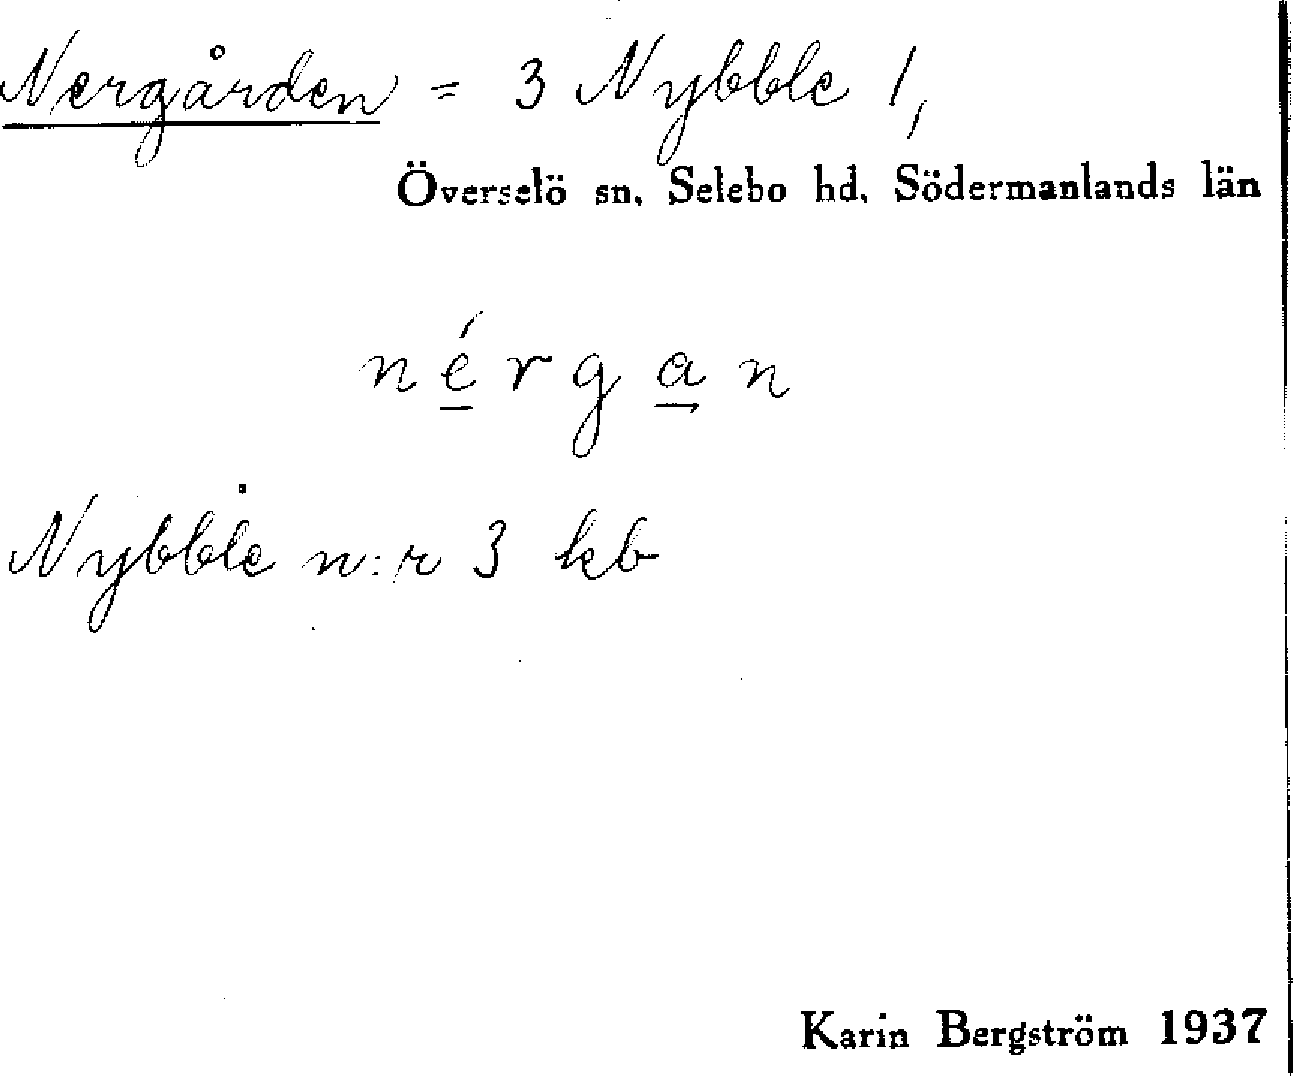 Nergården = 3 Nybble 1,
Överselö sn, Selebo hd, Södermanlands län
nérgan
Nybble n:r 3 kb
Karin Bergström 1937